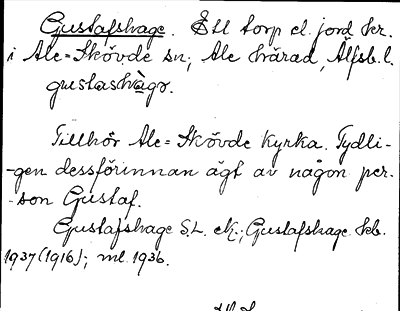 Gustafshage. Ett torp el. jord kr.
i Ale-Skövde sn; Ale härad, Älfsb. l.
gustashàgr.
Tillhör Ale-Skövde kyrka. Tydli-
-gen dessförinnan ägt av någon per-
-son Gustaf.
Gustafshage S.L. ek.; Gustafshage kb.
1937 (1916); ml. 1936.